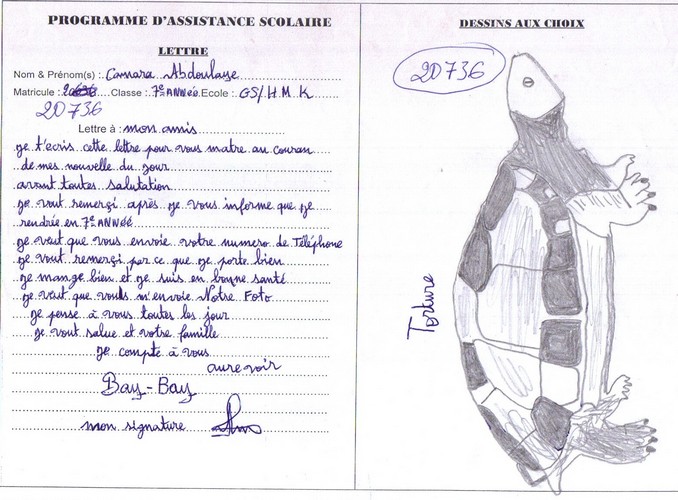 PROGRAMME D'ASSISTANCE SCOLAIRE
LETTRE
Nom & Prénom(s) : Camara Abdoulaye
Matricule : Classe : 7e ANNée Ecole : GS/H M K
20736
Lettre à : mon amis
je t'ecris cette lettre pour vous matre au couran
de mes nouvelle du jour
avant toutes salutation
je vout remerçi après je vous informe que je
rendrée en 7e ANNée
je veut que vous envoie votre numero de Téléphone
je vout remerçi par ce que je porte bien
je mange bien et je suis en bonne santé
je veut que vouls m'envoie Notre Foto
je pense à vous toutes les jour
je vout salue et votre famille
je compte à vous
aurevoir
Bay-Bay
mon signature
DESSINS AUX CHOIX
20736
Torture